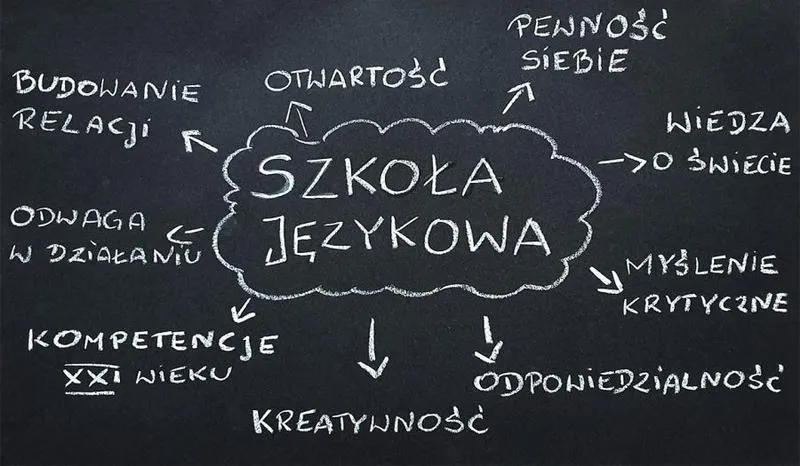 PEWNOŚĆ
SIEBIE
OTWARTOŚĆ
BUDOWANIE
RELACJI
WIEDZA
O ŚWIECIE
SZKOŁA
JĘZYKOWA
ODWAGA
W DZIAŁANIU
MYŚLENIE
KRYTYCZNE
KOMPETENCJE
XXI WIEKU
ODPOWIEDZIALNOŚĆ
KREATYWNOŚĆ